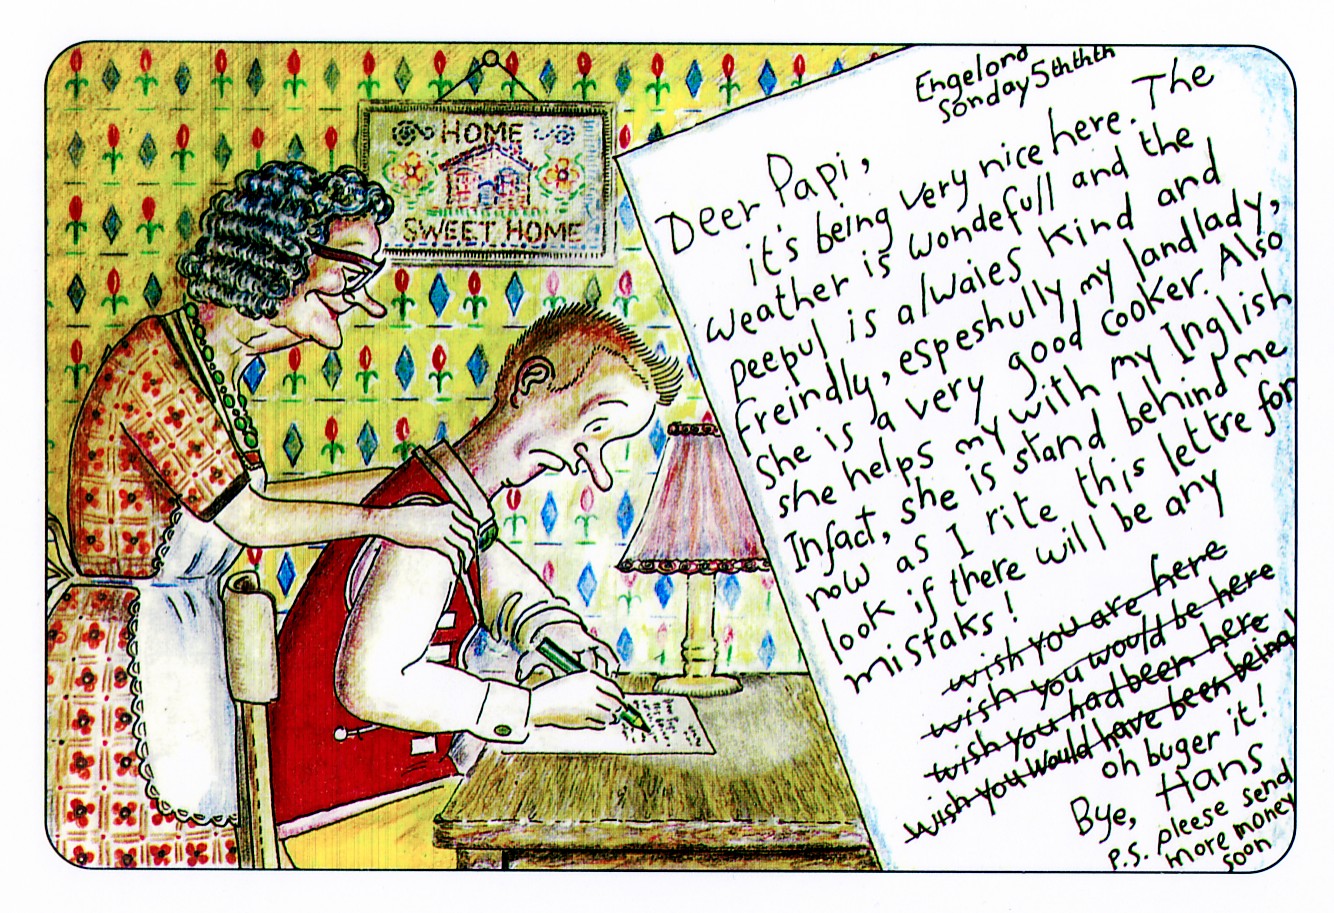 HOME
SWEET HOME
Engelond
Sonday 5ththth
Deer Papi,
it's being very nice here. The
weather is wondefull and the
peepul is alwaies kind and
freindly, espeshully my landlady,
She is a very good cooker. Also
she helps my with my Inglish
Infact, she is stand behind me
now as I rite this lettre for
look if there will be any
mistaks!
wish you are here
wish you would be here
wish you had been here
wish you would have been being
oh buger it!
Bye, Hans
P.S. pleese send
more money
soon